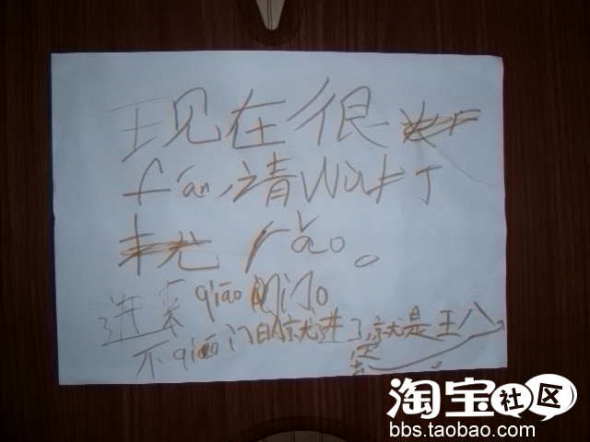 现在很
fán,请wù打
rǎo。
进要qiāo
不qiāo门的就进了就是王八
淘宝社区
bbs.taobao.com